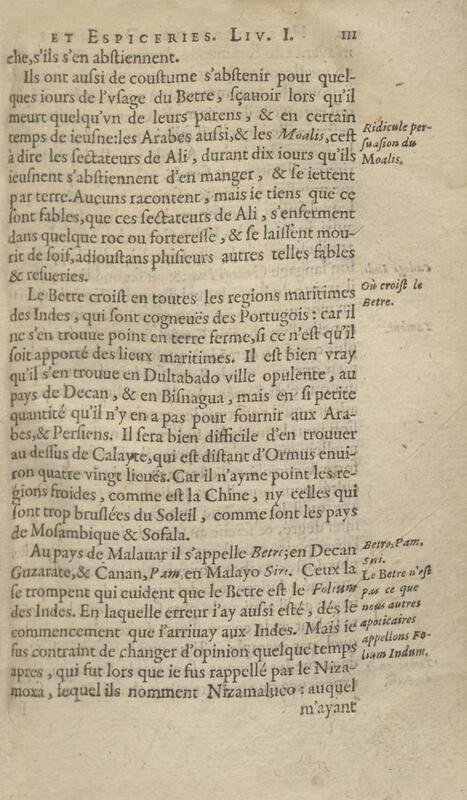 ET ESPICERIES. LIV. I. 111
che, s'ils s'en abſtiennent.
Ils ont auſſi de couſtume s'abſtenir pour quel-
ques iours de l'vſage du Betre, ſçauoir lors qu'il
meurt quelqu'vn de leurs parens, & en certain
temps de ieuſne: les Arabes auſſi, & les Moalis, c'eſt
à dire les ſectateurs de Ali, durant dix iours qu'ils
ieuſnent s'abſtiennent d'en manger, & ſe iettent
par terre. Aucuns racontent, mais ie tiens que ce
ſont fables, que ces ſectateurs de Ali, s'enferment
dans quelque roc ou fortereſſe, & ſe laiſſent mou-
rir de ſoif, adiouſtans pluſieurs autres telles fables
& reſueries.
Ridicule per-
ſuaſion du
Moalis.
Le Betre croiſt en toutes les regions maritimes
des Indes, qui ſont cogneuës des Portugois: car il
ne s'en trouue point en terre ferme, ſi ce n'eſt qu'il
ſoit apporté des lieux maritimes. Il eſt bien vray
qu'il s'en trouue en Dultabado ville opulente, au
pays de Decan, & en Biſnagua, mais en ſi petite
quantité qu'il n'y en a pas pour fournir aux Ara-
bes, & Perſiens. Il ſera bien difficile d'en trouuer
au deſſus de Calayte, qui eſt diſtant d'Ormus enui-
ron quatre vingt lieuës. Car il n'ayme point les re-
gions froides, comme eſt la Chine, ny celles qui
ſont trop bruſlées du Soleil, comme ſont les pays
de Moſambique & Sofala.
Où croiſt le
Betre.
Au pays de Malauar il s'appelle Betre; en Decan
Guzarate, & Canan, Pam, en Malayo Siri. Ceux la
ſe trompent qui cuident que le Betre eſt le Folium
des Indes. En laquelle erreur i'ay auſſi eſté, dés le
commencement que i'arriuay aux Indes. Mais ie
fus contraint de changer d'opinion quelque temps
apres, qui fut lors que ie fus rappellé par le Niza-
moxa, lequel ils nomment Nizamaluco: auquel
m'ayant
Betre, Pam,
Siri.
Le Betre n'eſt
pas ce que
nous autres
apoticaires
appellons Fo-
lium Indum.